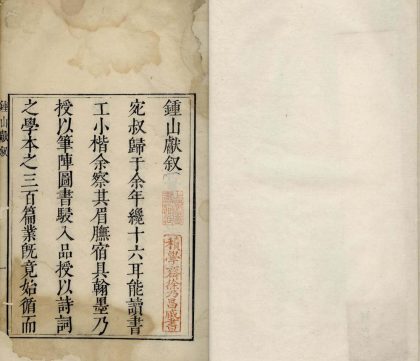 鍾山獻叙
宛叔歸于余年纔十六耳能讀書
工小楷余察其眉膴宿具翰墨乃
授以筆陣圖書駸入品授以詩詞
之學本之三百篇業旣竟始循而
積學齋徐乃昌藏書
鍾山獻叙